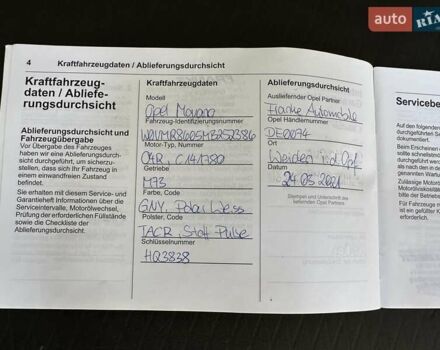 auto RIA
4 Kraftfahrzeugdaten / Ablieferungsdurchsicht
Kraftfahrzeug-
daten / Abliefe-
rungsdurchsicht
Ablieferungsdurchsicht und
Fahrzeugübergabe
Vor Übergabe des Fahrzeuges
haben wir eine Ablieferungsdurch-
sicht durchgeführt, um sicherzu-
stellen, dass sich Ihr Fahrzeug in
einem einwandfreien Zustand
befindet.
Sie erhalten mit diesem Service- und
Garantieheft Informationen über die
Serviceintervalle, Motorölwechsel,
Prüfung der erforderlichen Füllstände
sowie die Checkliste der
Ablieferungsdurchsicht.
Kraftfahrzeugdaten
Modell
Opel Movano
Fahrzeug-Identifizierungsnummer
W0VMR8605MB252386
Motor-Typ, Nummer
C141780
Getriebe
M73
Farbe, Code
GNY, Polar Weiss
Polster, Code
TACR, Stoff Pulse
Schlüsselnummer
HQ3838
Ablieferungsdurchsicht
Ausliefernder Opel Partner
Automobile
Opel Händlernummer
DE0074
Ort
Weiden i.d.Opf.
Datum
24.03.2021
Stempel und Unterschrift des
liefernden Opel Partners
Servicebe
Auf den folgen
durchgeführten
Beim Erscheinen
sollte schnellsten
durchgeführt
das in der
genannten Wartun
Zulässige Motorö
Motorölqualitäts
der Betriebsa
Für Fahrzeuge m